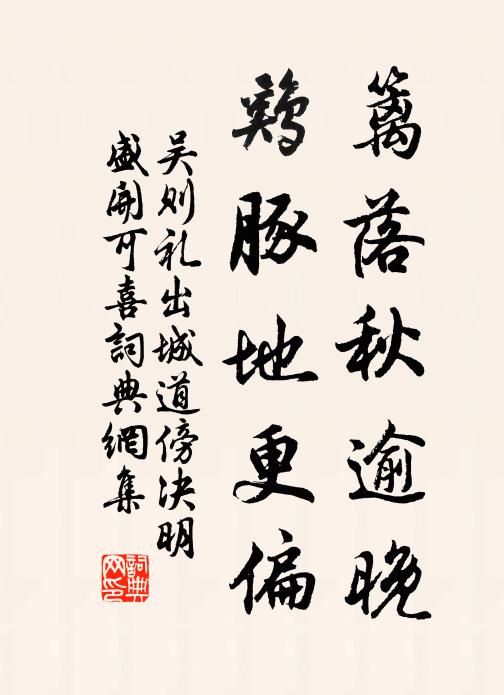 篱落秋逾晚
鷄豚地更偏
吴则礼出城道傍决明
盛開可喜詞典網集
詞典网印